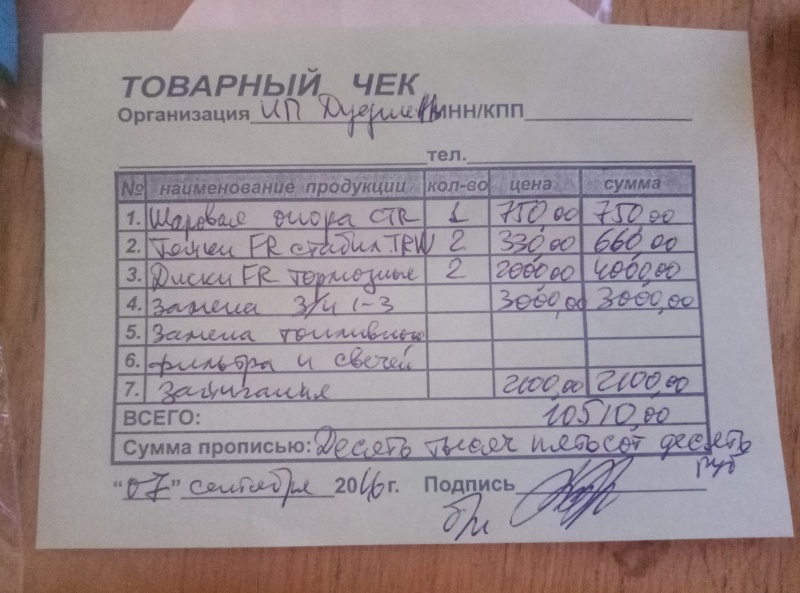 ТОВАРНЫЙ ЧЕК
Организация ИП ИНН/КПП
тел.
№ наименование продукции кол-во цена сумма
1. Шаровая опора CTR 1 750,00 750,00
2. FR стабил. TRW 2 330,00 660,00
3. Диски FR тормозные 2 2000,00 4000,00
4. Замена З/Ч 1-3 3000,00 3000,00
5. Замена топливного
6. фильтра и свечей
7. зажигания 2100,00 2100,00
ВСЕГО: 10510,00
Сумма прописью: Десять тысяч пятьсот десять
руб
“07” сентября 2016 г. Подпись